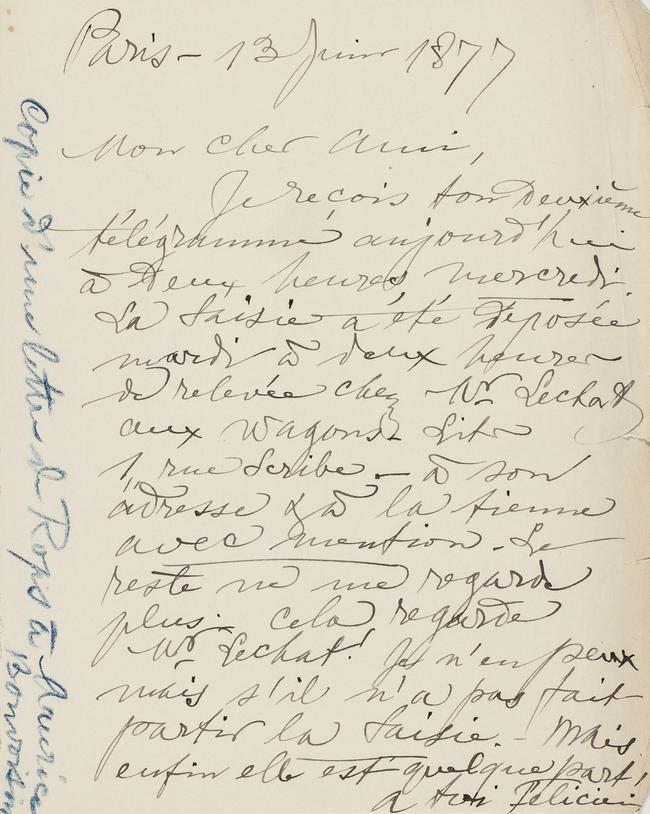 Paris - 13 Juin 1877
Mon cher Ami,
Je reçois ton Deuxième
télégramme aujourd'hui
à Deux heures mercredi.
La Saisie a été Déposée
mardi à deux heures
de relevée chez Mr Lechat
aux Wagons-Lits
1, rue Scribe - à son
adresse & à la tienne
avec mention. Le
reste ne me regarde
plus. cela regarde
Mr Lechat! Je n'en peux
mais s'il n'a pas fait
partir la Saisie. - Mais
enfin elle est quelque part!
a toi Félicien
Copie d'une lettre de Rops à Maurice
Bonvoisin